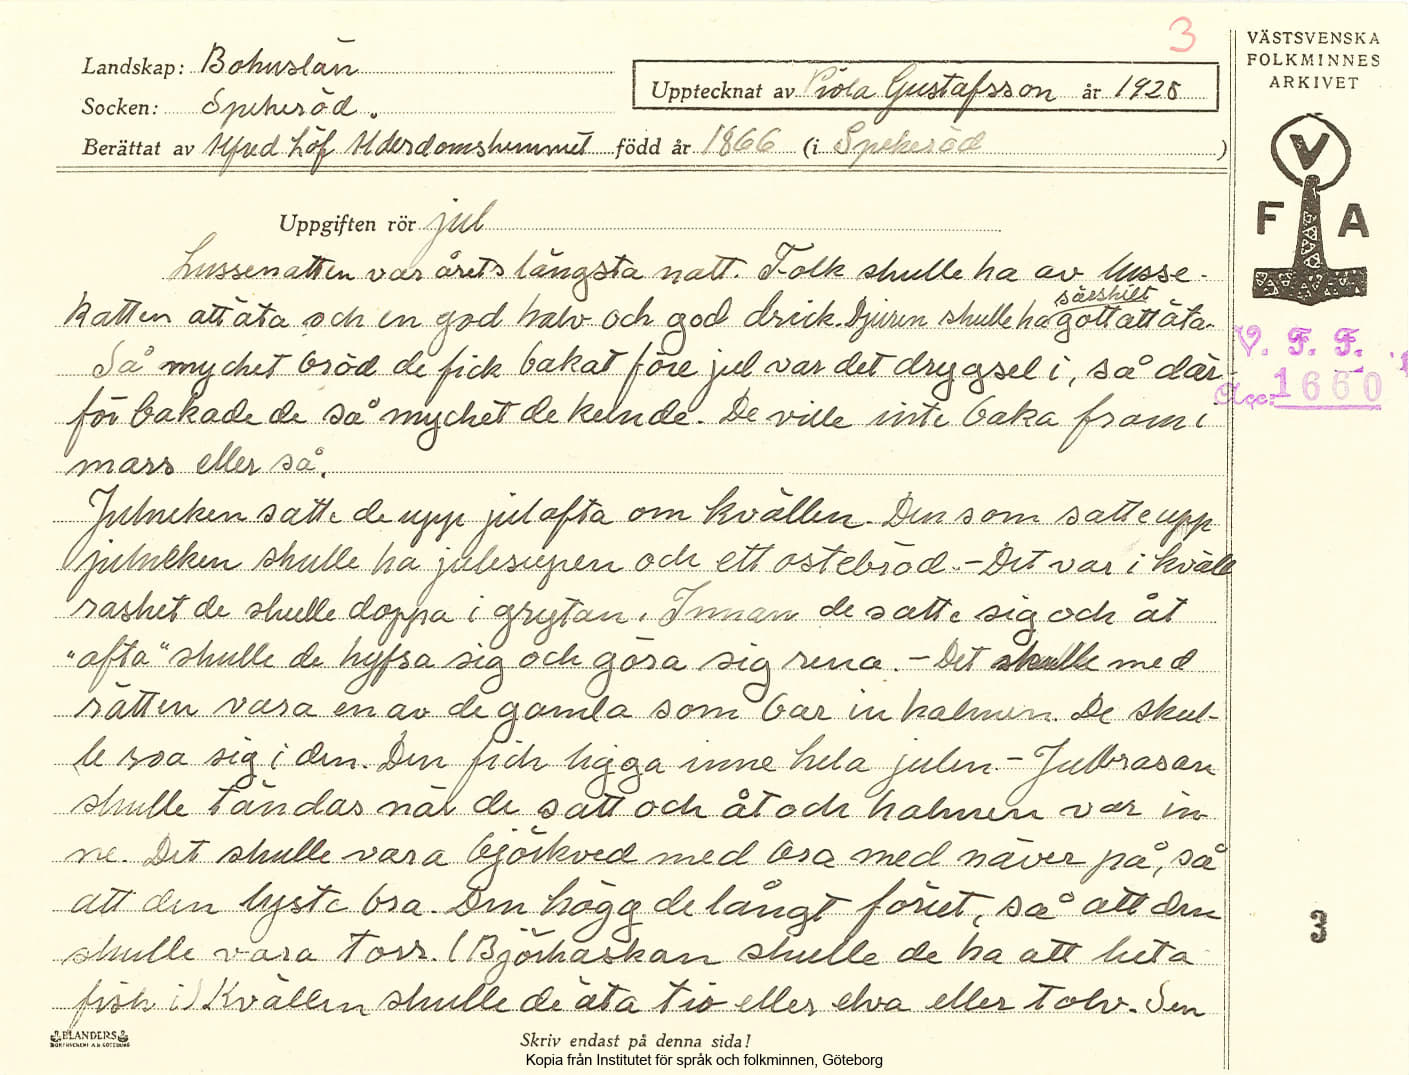 3
Landskap: Bohuslän
Socken: Spekeröd.
Upptecknat av Viola Gustafsson år 1928
Berättat av Alfred Löf Ålderdomshemmet född år 1866 (i Spekeröd )
Uppgiften rör jul
Lussenatten var årets längsta natt. Folk skulle ha av lusse-
katten att äta och en god halv och god drick. Djuren skulle ha särskilt gott att äta.
Så mycket bröd de fick bakat före jul var det drygsel i, så där-
för bakade de så mycket de kunde. De ville inte baka fram i
mars eller så.
Julneken satte de upp julafta om kvällen. Den som satte upp
julneken skulle ha julesupen och ett ostebröd. - Det var i kväll
rasket de skulle doppa i grytan. Innan de satte sig och åt
"afta" skulle de hyfsa sig och göra sig rena. - Det skulle med
rätten vara en av de gamla som bar in halmen. De skul-
le roa sig i den. Den fick ligga inne hela julen. - Julbrasan
skulle tändas när de satt och åt och halmen var in-
ne. Det skulle vara björkved med bra med näver på, så
att den lyste bra. Den högg de långt föriet, så att den
skulle vara torr. (Björkaskan skulle de ha att luta
fisk i) Kvällen skulle de äta tio eller elva eller tolv. Sen
ELANDERS
BOKTRYCKERI A.B. GÖTEBORG
Skriv endast på denna sida!
Kopia från Institutet för språk och folkminnen, Göteborg
VÄSTSVENSKA
FOLKMINNES
ARKIVET
V
F A
V. F. F.
Acc: 1660
3